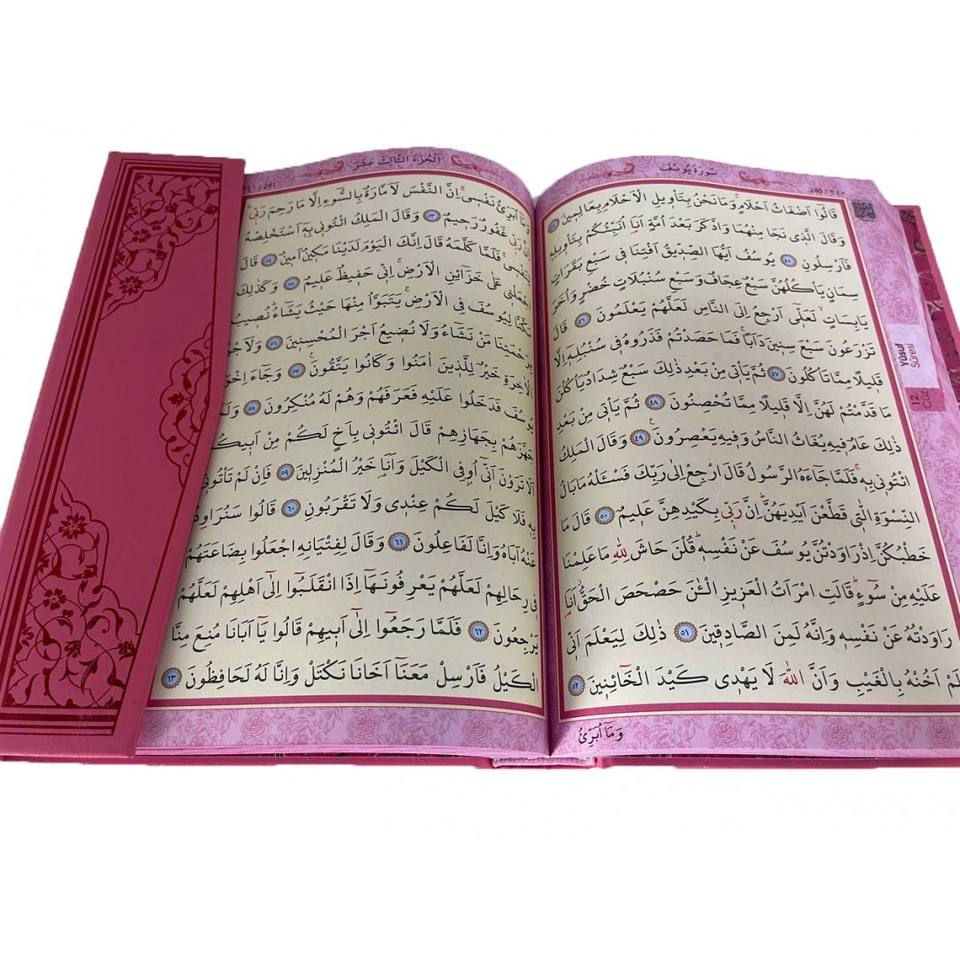 سُورَةُ يُوسُفَ
240 / ٢٤٠
قَالُٓوا اَضْغَاثُ اَحْلَامٍۚ وَمَا نَحْنُ بِتَأْو۪يلِ الْاَحْلَامِ بِعَالِم۪ينَ
وَقَالَ الَّذ۪ي نَجَا مِنْهُمَا وَادَّكَرَ بَعْدَ اُمَّةٍ اَنَا۬ اُنَبِّئُكُمْ بِتَأْو۪يلِه۪
فَاَرْسِلُونِ ٤٥ يُوسُفُ اَيُّهَا الصِّدّ۪يقُ اَفْتِنَا ف۪ي سَبْعِ بَقَرَاتٍ
سِمَانٍ يَأْكُلُهُنَّ سَبْعٌ عِجَافٌ وَسَبْعِ سُنْبُلَاتٍ خُضْرٍ وَاُخَرَ
يَابِسَاتٍۙ لَعَلّ۪ٓي اَرْجِعُ اِلَى النَّاسِ لَعَلَّهُمْ يَعْلَمُونَ ٤٦ قَالَ
تَزْرَعُونَ سَبْعَ سِن۪ينَ دَاَبًاۚ فَمَا حَصَدْتُمْ فَذَرُوهُ ف۪ي سُنْبُلِه۪ٓ اِلَّا
قَل۪يلًا مِمَّا تَأْكُلُونَ ٤٧ ثُمَّ يَأْت۪ي مِنْ بَعْدِ ذٰلِكَ سَبْعٌ شِدَادٌ يَأْكُلْنَ
مَا قَدَّمْتُمْ لَهُنَّ اِلَّا قَل۪يلًا مِمَّا تُحْصِنُونَ ٤٨ ثُمَّ يَأْت۪ي مِنْ بَعْدِ
ذٰلِكَ عَامٌ ف۪يهِ يُغَاثُ النَّاسُ وَف۪يهِ يَعْصِرُونَ ٤٩ وَقَالَ الْمَلِكُ
ائْتُون۪ي بِه۪ۚ فَلَمَّا جَٓاءَهُ الرَّسُولُ قَالَ ارْجِعْ اِلٰى رَبِّكَ فَسْـَٔلْهُ مَا بَالُ
النِّسْوَةِ الّٰت۪ي قَطَّعْنَ اَيْدِيَهُنَّۜ اِنَّ رَبّ۪ي بِكَيْدِهِنَّ عَل۪يمٌ ٥٠ قَالَ مَا
خَطْبُكُنَّ اِذْ رَاوَدْتُنَّ يُوسُفَ عَنْ نَفْسِه۪ۜ قُلْنَ حَاشَ لِلّٰهِ مَا عَلِمْنَا
عَلَيْهِ مِنْ سُٓوءٍۜ قَالَتِ امْرَاَتُ الْعَز۪يزِ الْـٰٔنَ حَصْحَصَ الْحَقُّۘ اَنَا۬
رَاوَدْتُهُ عَنْ نَفْسِه۪ وَاِنَّهُ لَمِنَ الصَّادِق۪ينَ ٥١ ذٰلِكَ لِيَعْلَمَ اَنّ۪ي
لَمْ اَخُنْهُ بِالْغَيْبِ وَاَنَّ اللّٰهَ لَا يَهْد۪ي كَيْدَ الْخَٓائِن۪ينَ ٥٢
وَمَٓا اُبَرِّئُ
Yûsuf
Sûresi
12.
Cüz
اَلْجُزْءُ الثَّالِثَ عَشَرَ
241
وَمَٓا اُبَرِّئُ نَفْس۪يۚ اِنَّ النَّفْسَ لَاَمَّارَةٌ بِالسُّٓوءِ اِلَّا مَا رَحِمَ رَبّ۪يۜ
اِنَّ رَبّ۪ي غَفُورٌ رَح۪يمٌ ٥٣ وَقَالَ الْمَلِكُ ائْتُون۪ي بِه۪ٓ اَسْتَخْلِصْهُ
لِنَفْس۪يۚ فَلَمَّا كَلَّمَهُ قَالَ اِنَّكَ الْيَوْمَ لَدَيْنَا مَك۪ينٌ اَم۪ينٌ ٥٤ قَالَ
اجْعَلْن۪ي عَلٰى خَزَٓائِنِ الْاَرْضِۚ اِنّ۪ي حَف۪يظٌ عَل۪يمٌ ٥٥ وَكَذٰلِكَ
مَكَّنَّا لِيُوسُفَ فِي الْاَرْضِۚ يَتَبَوَّاُ مِنْهَا حَيْثُ يَشَٓاءُۜ نُص۪يبُ
بِرَحْمَتِنَا مَنْ نَشَٓاءُ وَلَا نُض۪يعُ اَجْرَ الْمُحْسِن۪ينَ ٥٦ وَلَاَجْرُ
الْاٰخِرَةِ خَيْرٌ لِلَّذ۪ينَ اٰمَنُوا وَكَانُوا يَتَّقُونَ ٥٧ وَجَٓاءَ اِخْوَةُ
يُوسُفَ فَدَخَلُوا عَلَيْهِ فَعَرَفَهُمْ وَهُمْ لَهُ مُنْكِرُونَ ٥٨ وَلَمَّا
جَهَّزَهُمْ بِجَهَازِهِمْ قَالَ ائْتُون۪ي بِاَخٍ لَكُمْ مِنْ اَب۪يكُمْۚ
اَلَا تَرَوْنَ اَنّ۪ٓي اُو۫فِي الْكَيْلَ وَاَنَا۬ خَيْرُ الْمُنْزِل۪ينَ ٥٩ فَاِنْ لَمْ تَأْتُون۪ي
بِه۪ فَلَا كَيْلَ لَكُمْ عِنْد۪ي وَلَا تَقْرَبُونِ ٦٠ قَالُوا سَنُرَاوِدُ
عَنْهُ اَبَاهُ وَاِنَّا لَفَاعِلُونَ ٦١ وَقَالَ لِفِتْيَانِهِ اجْعَلُوا بِضَاعَتَهُمْ
ف۪ي رِحَالِهِمْ لَعَلَّهُمْ يَعْرِفُونَهَٓا اِذَا انْقَلَبُٓوا اِلٰٓى اَهْلِهِمْ لَعَلَّهُمْ
يَرْجِعُونَ ٦٢ فَلَمَّا رَجَعُٓوا اِلٰٓى اَب۪يهِمْ قَالُوا يَٓا اَبَانَا مُنِعَ مِنَّا
الْكَيْلُ فَاَرْسِلْ مَعَنَٓا اَخَانَا نَكْتَلْ وَاِنَّا لَهُ لَحَافِظُونَ ٦٣